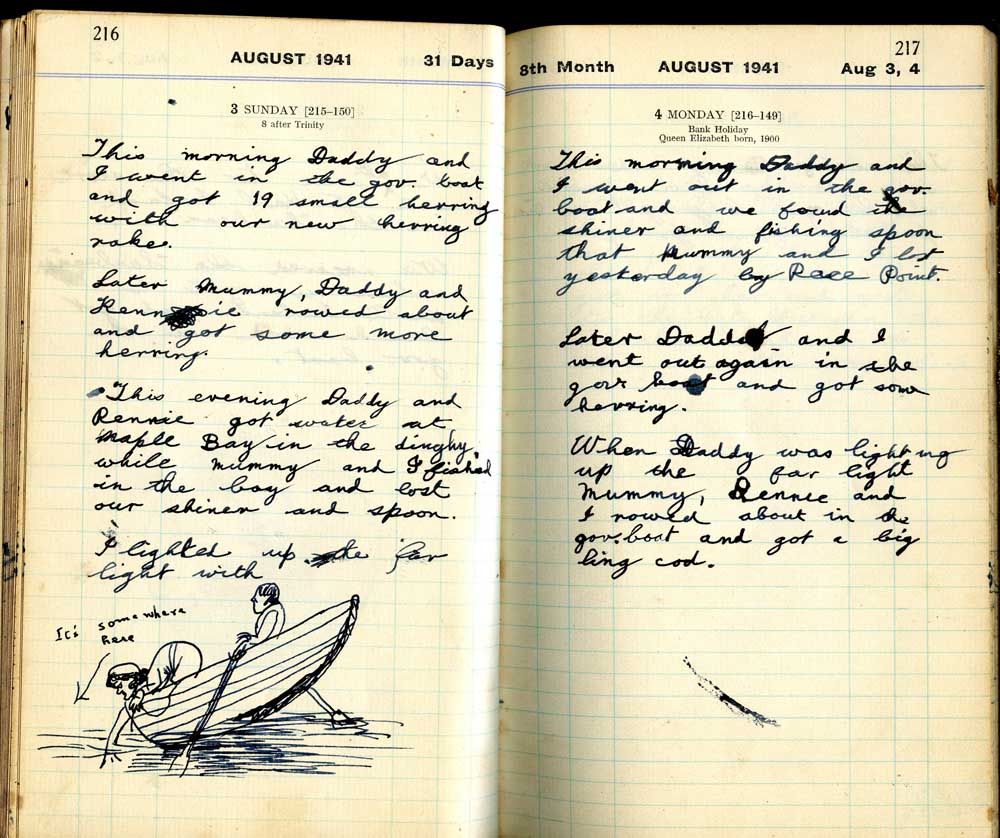 216
AUGUST 1941 31 Days
3 SUNDAY [215–150]
8 after Trinity
This morning Daddy and
I went in the gov. boat
and got 19 small herring
with our new herring
rake.
Later Mummy, Daddy and
Rennie rowed about
and got some more
herring.
This evening Daddy and
Rennie got water at
Maple Bay in the dinghy,
while Mummy and I fished
in the bay and lost
our shiner and spoon.
I lighted up the far
light with
It's somewhere
here
217
8th Month AUGUST 1941 Aug 3, 4
4 MONDAY [216–149]
Bank Holiday
Queen Elizabeth born, 1900
This morning Daddy and
I went out in the gov.
boat and we found the
shiner and fishing spoon
that Mummy and I lost
yesterday by Race Point.
Later Daddy and I
went out again in the
gov boat and got some
herring.
When Daddy was lighting
up the far light
Mummy, Rennie and
I rowed about in the
gov. boat and got a big
ling cod.